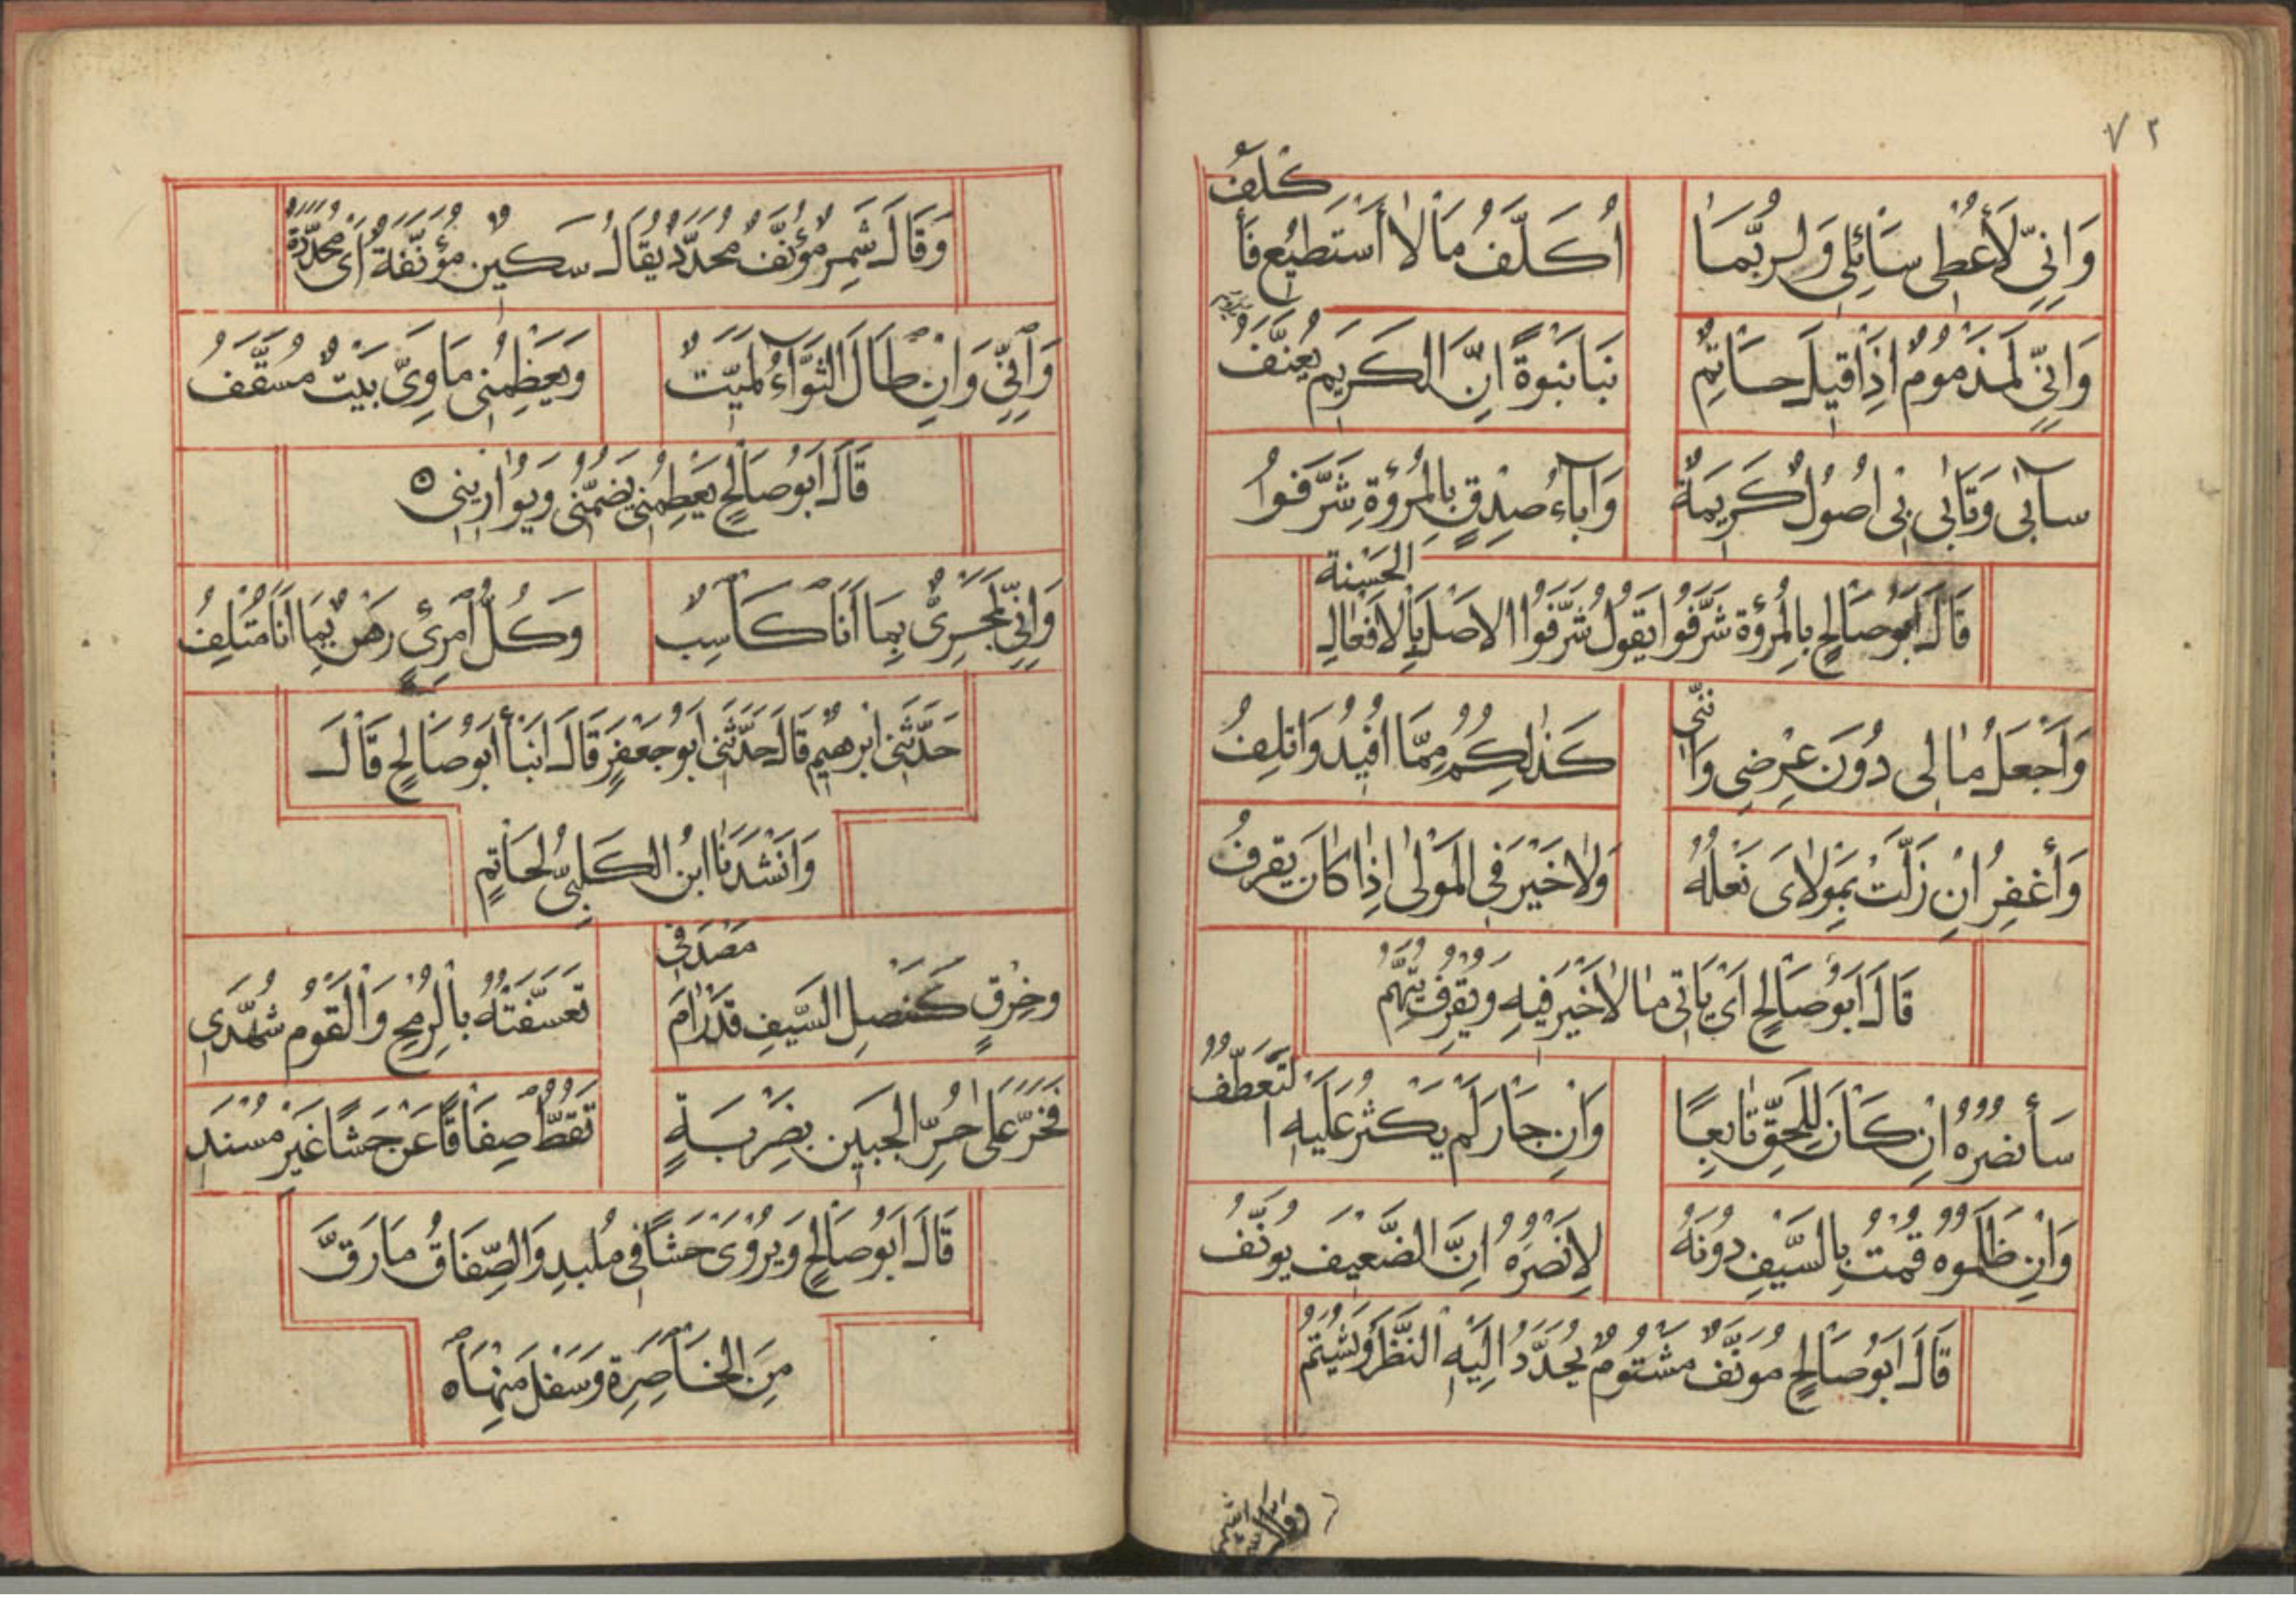 ٧٢
وَاِنِّي لَأُعْطِي سَائِلِي وَلَرُبَّمَا اُكَلَّفُ مَا لَا أَسْتَطِيعُ فَأَكْلَفُ
وَاِنِّي لَمَذْمُومٌ اِذَا قِيلَ حَاتِمٌ نَبَا نَبْوَةً اِنَّ الْكَرِيمَ يُعَنَّفُ
سَآبَى وَتَأْبَى بِي اُصُولٌ كَرِيمَةٌ وَآبَاءُ صِدْقٍ بِالْمُرُؤَةِ شَرَّفُوا
قَالَ اَبُو صَالِحٍ بِالْمُرُؤَةِ شَرَّفُوا يَقُولُ شَرَّفُوا الْاَصْلَ بِالْاَفْعَالِ الْحَسَنَةِ
وَاَجْعَلُ مَالِي دُونَ عِرْضِي وَاِنَّنِي كَذٰلِكُمُ مِمَّا اُفِيدُ وَاُتْلِفُ
وَأَغْفِرُ اِنْ زَلَّتْ بِمَوْلَايَ نَعْلُهُ وَلَا خَيْرَ فِي الْمَوْلَى اِذَا كَانَ يُقْرِفُ
قَالَ اَبُو صَالِحٍ اَيْ يَاْتِي مَا لَا خَيْرَ فِيهِ وَيُقْرِفُ يُتَّهَمُ
سَأَنْصُرُهُ اِنْ كَانَ لِلْحَقِّ تَابِعًا وَاِنْ جَارَ لَمْ يَكْثُرْ عَلَيْهِ التَّعَطُّفُ
وَاِنْ ظَلَمُوهُ قُمْتُ بِالسَّيْفِ دُونَهُ لِاَنْصُرَهُ اِنَّ الضَّعِيفَ يُونَّفُ
قَالَ اَبُو صَالِحٍ مُونَّفٌ مَشْتُومٌ يُحَدَّدُ اِلَيْهِ النَّظَرُ وَيُشْتَمُ
وَقَالَ شمر
وَقَالَ شَمِرٌ مُؤَنَّفٌ مُحَدَّدٌ يُقَالُ سَكِينٌ مُؤَنَّفَةٌ اَيْ مُحَدَّدَةٌ
وَاِنِّي وَاِنْ طَالَ الثَّوَاءُ لَمَيِّتٌ وَيَعْظِمُنِي مَاوِيَّ بَيْتٌ مُسَقَّفُ
قَالَ اَبُو صَالِحٍ يَعْظِمُنِي يَضُمُّنِي وَيُوَارِينِي ۝
وَاِنِّي لَمَجْزِيٌّ بِمَا اَنَا كَاسِبٌ وَكُلُّ امْرِئٍ رَهْنٌ بِمَا اَنَا مُتْلِفُ
حَدَّثَنِي اِبْرٰهِيمُ قَالَ حَدَّثَنِي اَبُو جَعْفَرٍ قَالَ اَنْبَأَ اَبُو صَالِحٍ قَالَ
وَاَنْشَدَنَا ابْنُ الْكَلْبِيِّ لِحَاتِمٍ
وَخِرْقٍ كَنَصْلِ السَّيْفِ قَدْ رَامَ مَصْدَفِي تَعَسَّفْتُهُ بِالرُّمْحِ وَالْقَوْمُ شُهَّدِي
فَخَرَّ عَلَى حُرِّ الْجَبِينِ بِضَرْبَةٍ تَقُطُّ صِفَاقًا عَنْ حَشًا غَيْرِ مُسْنَدِ
قَالَ اَبُو صَالِحٍ وَيُرْوَى حَشًا فِي مُلْبَدِ وَالصِّفَاقُ مَا رَقَّ
مِنَ الْخَاصِرَةِ وَسَفَلَ مِنْهَا ۝